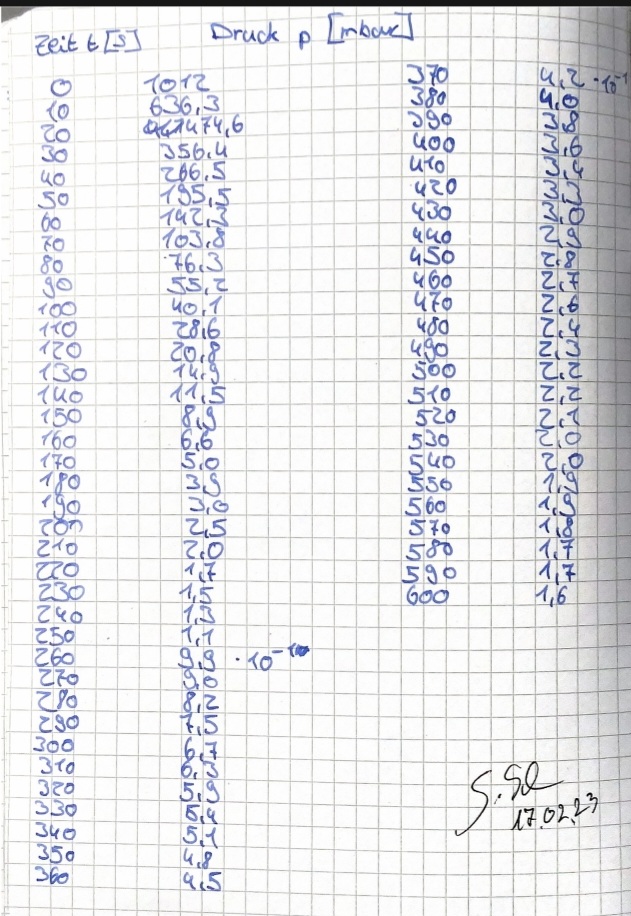 Zeit t [s] Druck p [mbar]
0 1012
10 636,3
20 474,6
30 356,4
40 266,5
50 195,5
60 142,3
70 103,8
80 76,3
90 55,2
100 40,1
110 28,6
120 20,8
130 14,9
140 11,5
150 8,9
160 6,6
170 5,0
180 3,9
190 3,0
200 2,5
210 2,0
220 1,7
230 1,5
240 1,3
250 1,1
260 9,9 · 10⁻¹
270 9,0
280 8,2
290 7,5
300 6,7
310 6,3
320 5,9
330 5,4
340 5,1
350 4,8
360 4,5
370 4,2 · 10⁻¹
380 4,0
390 3,8
400 3,6
410 3,4
420 3,3
430 3,0
440 2,9
450 2,8
460 2,7
470 2,6
480 2,4
490 2,3
500 2,2
510 2,2
520 2,1
530 2,0
540 2,0
550 1,9
560 1,9
570 1,8
580 1,7
590 1,7
600 1,6
17.02.23